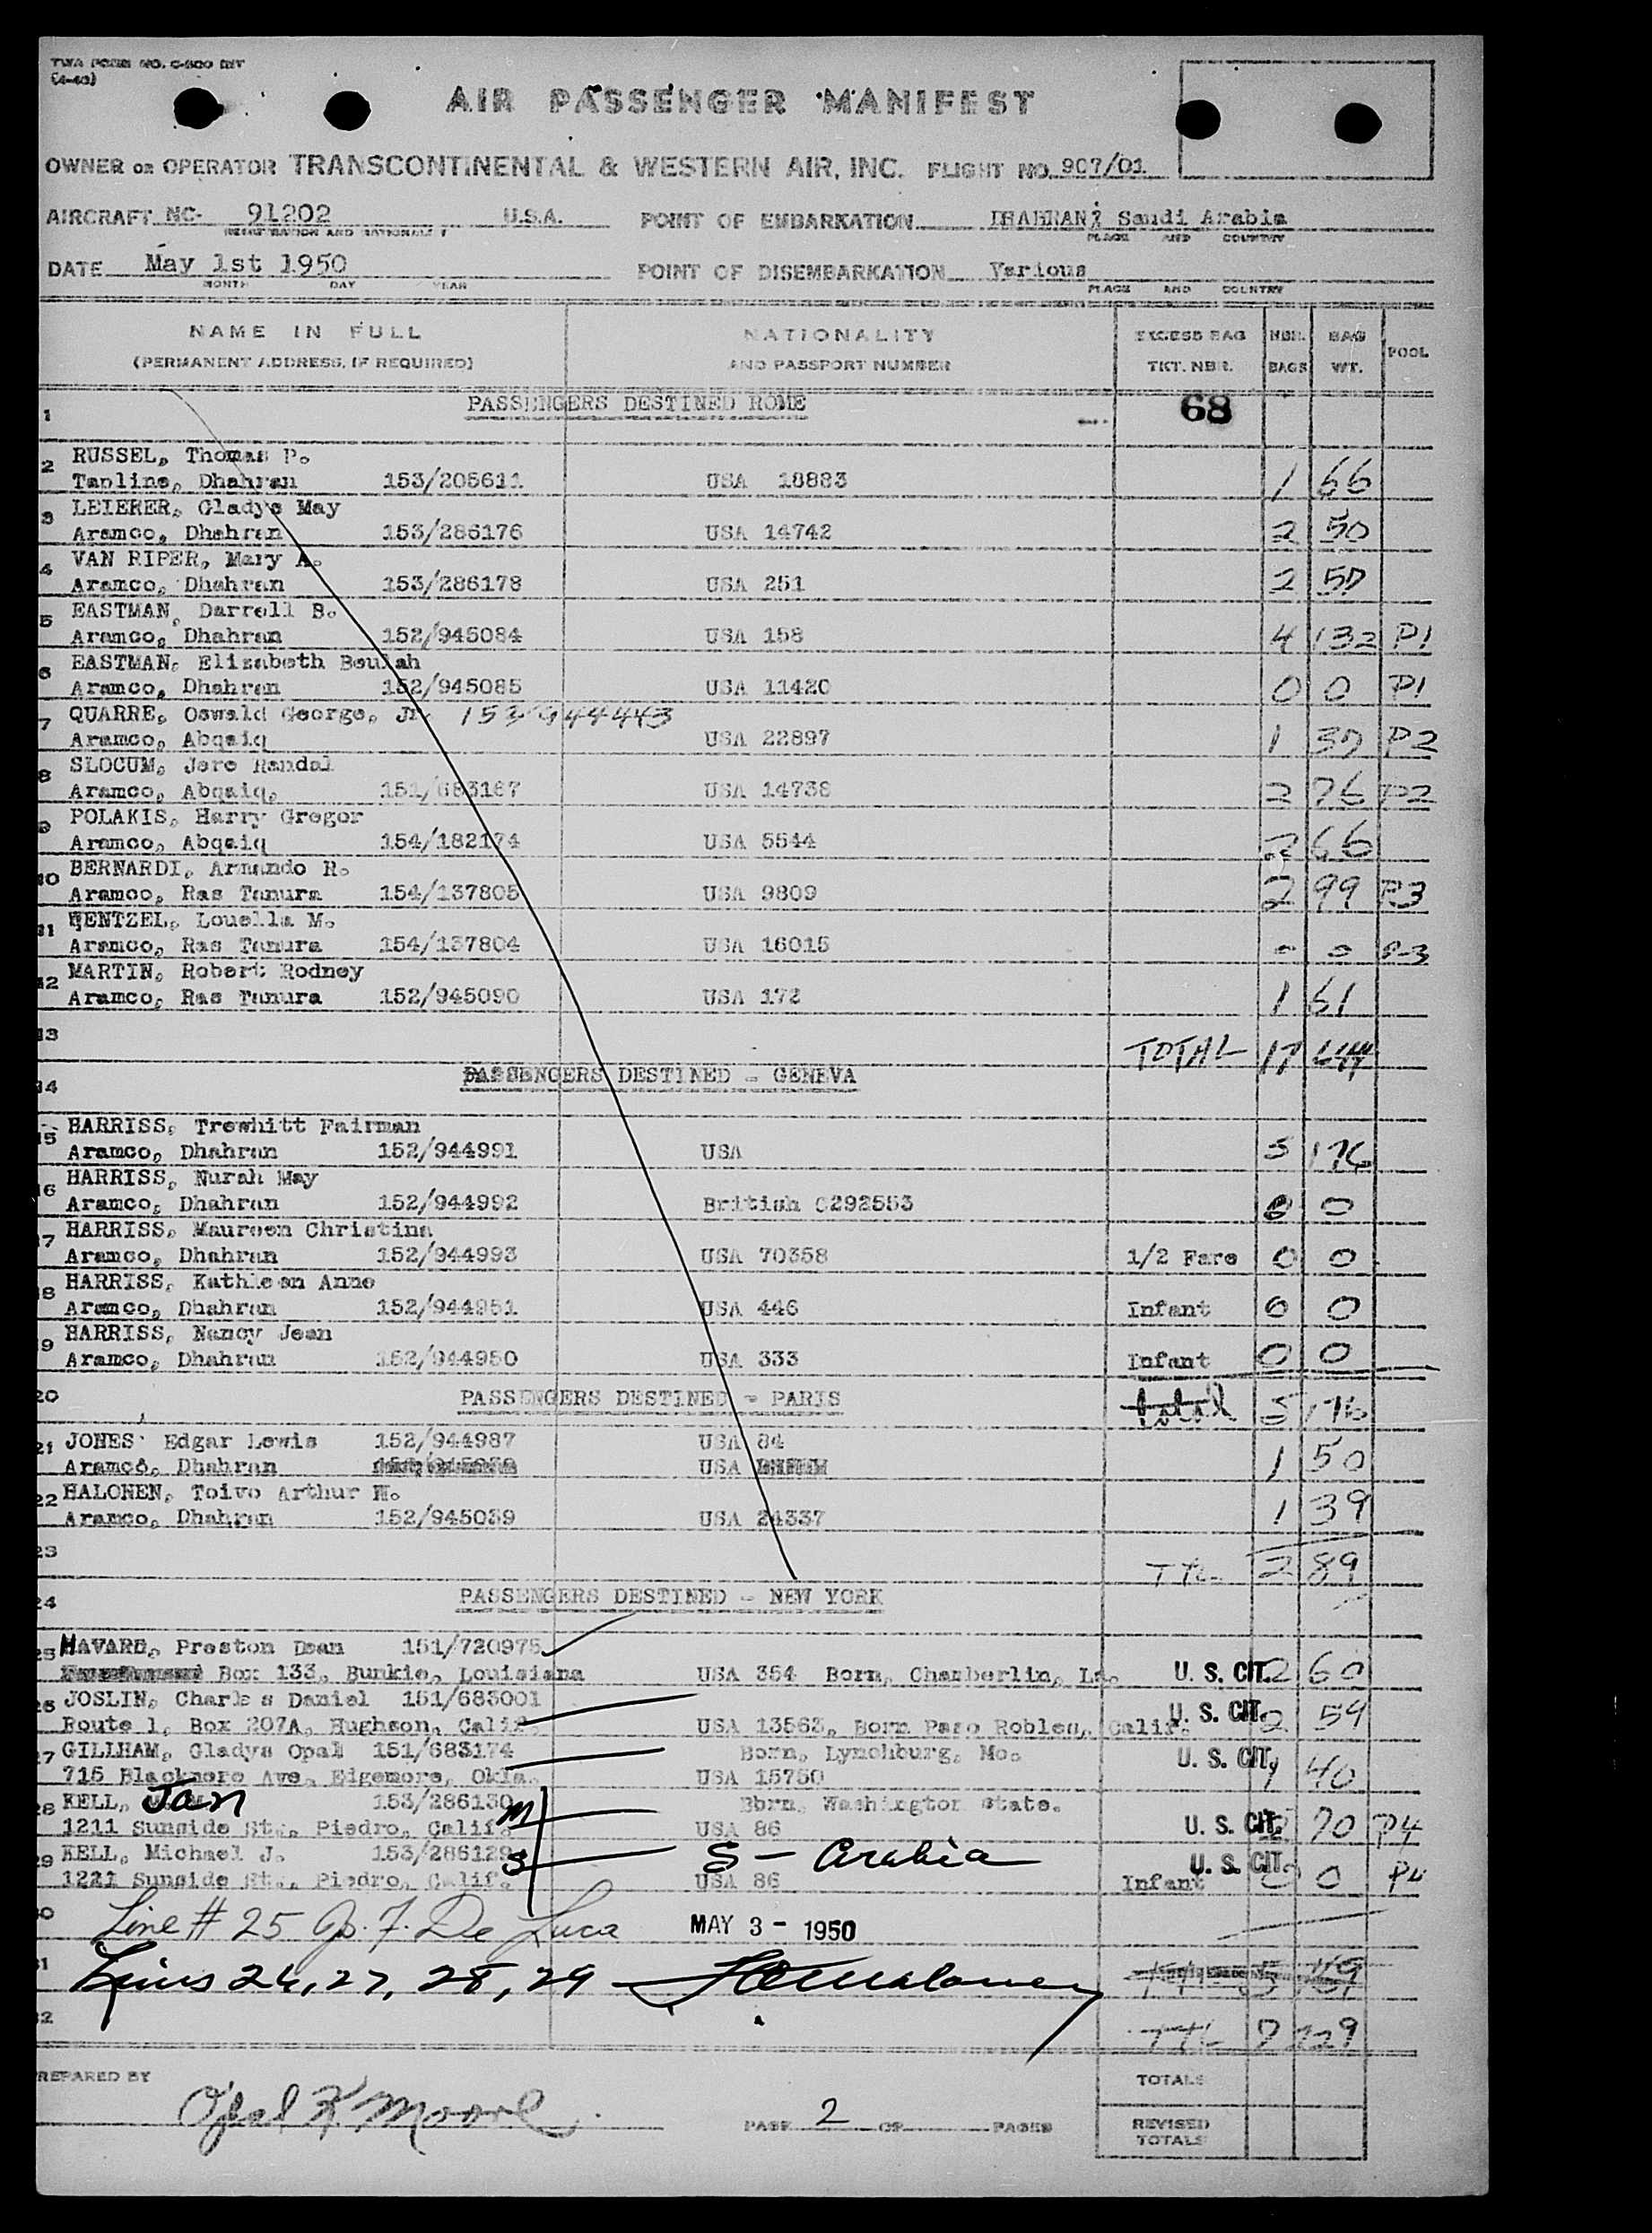 TWA FORM NO. C-800 INT
(4-48)
AIR PASSENGER MANIFEST
OWNER OR OPERATOR TRANSCONTINENTAL & WESTERN AIR, INC. FLIGHT NO. 907/01
AIRCRAFT NC- 91202 U.S.A. POINT OF EMBARKATION DHAHRAN, Saudi Arabia
REGISTRATION AND NATIONALITY PLACE AND COUNTRY
DATE May 1st 1950 POINT OF DISEMBARKATION Various
MONTH DAY YEAR PLACE AND COUNTRY
NAME IN FULL NATIONALITY EXCESS BAG NBR. BAG POOL
(PERMANENT ADDRESS, IF REQUIRED) AND PASSPORT NUMBER TKT. NBR. BAGS WT.
1 PASSENGERS DESTINED ROME 68
2 RUSSEL, Thomas P.
Tapline, Dhahran 153/205611 USA 18883 1 66
3 LEIERER, Gladys May
Aramco, Dhahran 153/286176 USA 14742 2 50
4 VAN RIPER, Mary A.
Aramco, Dhahran 153/286178 USA 251 2 57
5 EASTMAN, Darrell B.
Aramco, Dhahran 152/945084 USA 158 4 132 P1
6 EASTMAN, Elizabeth Beulah
Aramco, Dhahran 152/945085 USA 11420 0 0 P1
7 QUARRE, Oswald George, Jr. 153/944443
Aramco, Abqaiq USA 22897 1 37 P2
8 SLOCUM, Jere Randal
Aramco, Abqaiq, 151/683167 USA 14738 2 76 P2
9 POLAKIS, Harry Gregor
Aramco, Abqaiq 154/182174 USA 5544 2 66
10 BERNARDI, Armando R.
Aramco, Ras Tanura 154/137805 USA 9809 2 99 P3
11 WENTZEL, Louella M.
Aramco, Ras Tanura 154/137804 USA 16015 0 0 P-3
12 MARTIN, Robert Rodney
Aramco, Ras Tanura 152/945090 USA 172 1 61
13 TOTAL 17 644
14 PASSENGERS DESTINED - GENEVA
15 HARRISS, Trewhitt Fairman
Aramco, Dhahran 152/944991 USA 5 176
16 HARRISS, Nurah May
Aramco, Dhahran 152/944992 British C292553 0 0
17 HARRISS, Maureen Christina
Aramco, Dhahran 152/944993 USA 70358 1/2 Fare 0 0
18 HARRISS, Kathleen Anne
Aramco, Dhahran 152/944951 USA 446 Infant 0 0
19 HARRISS, Nancy Jean
Aramco, Dhahran 152/944950 USA 333 Infant 0 0
20 PASSENGERS DESTINED - PARIS total 5 176
21 JONES Edgar Lewis 152/944987 USA 84
Aramco, Dhahran USA 1 50
22 HALONEN, Toivo Arthur W.
Aramco, Dhahran 152/945039 USA 24337 1 39
23 TTL 2 89
24 PASSENGERS DESTINED - NEW YORK
25 HAVARD, Preston Dean 151/720975
Box 133, Bunkie, Louisiana USA 354 Born, Chamberlin, La. U. S. CIT. 2 60
26 JOSLIN, Charles Daniel 151/683001
Route 1, Box 207A, Hughson, Calif. USA 13563, Born Paso Robles, Calif. U. S. CIT. 2 59
27 GILLHAM, Gladys Opal 151/683174 Born, Lynchburg, Mo. U. S. CIT.
715 Blackmore Ave, Edgemore, Okla. USA 15750 1 40
28 KELL, Jan 153/286130 M Born, Washington State.
1211 Sunside St., Piedro, Calif. USA 86 U. S. CIT. 2 70 P4
29 KELL, Michael J. 153/286129 S S - Arabia U. S. CIT.
1221 Sunside St., Piedro, Calif. USA 86 Infant 0 0 P4
30 Line # 25 Jo. F. De Luca MAY 3 - 1950
31 Lines 26, 27, 28, 29
32 TTL 7 229
PREPARED BY TOTALS
Opal K. Moore PAGE 2 OF PAGES REVISED
TOTALS